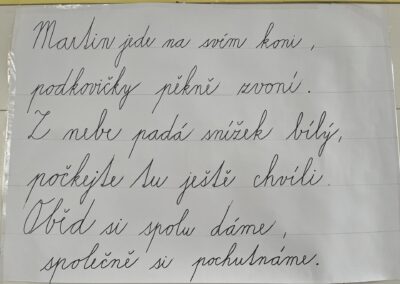 Martin jede na svém koni,
podkovičky pěkně zvoní.
Z nebe padá snížek bílý,
počkejte tu ještě chvíli.
Oběd si spolu dáme,
společně si pochutnáme.